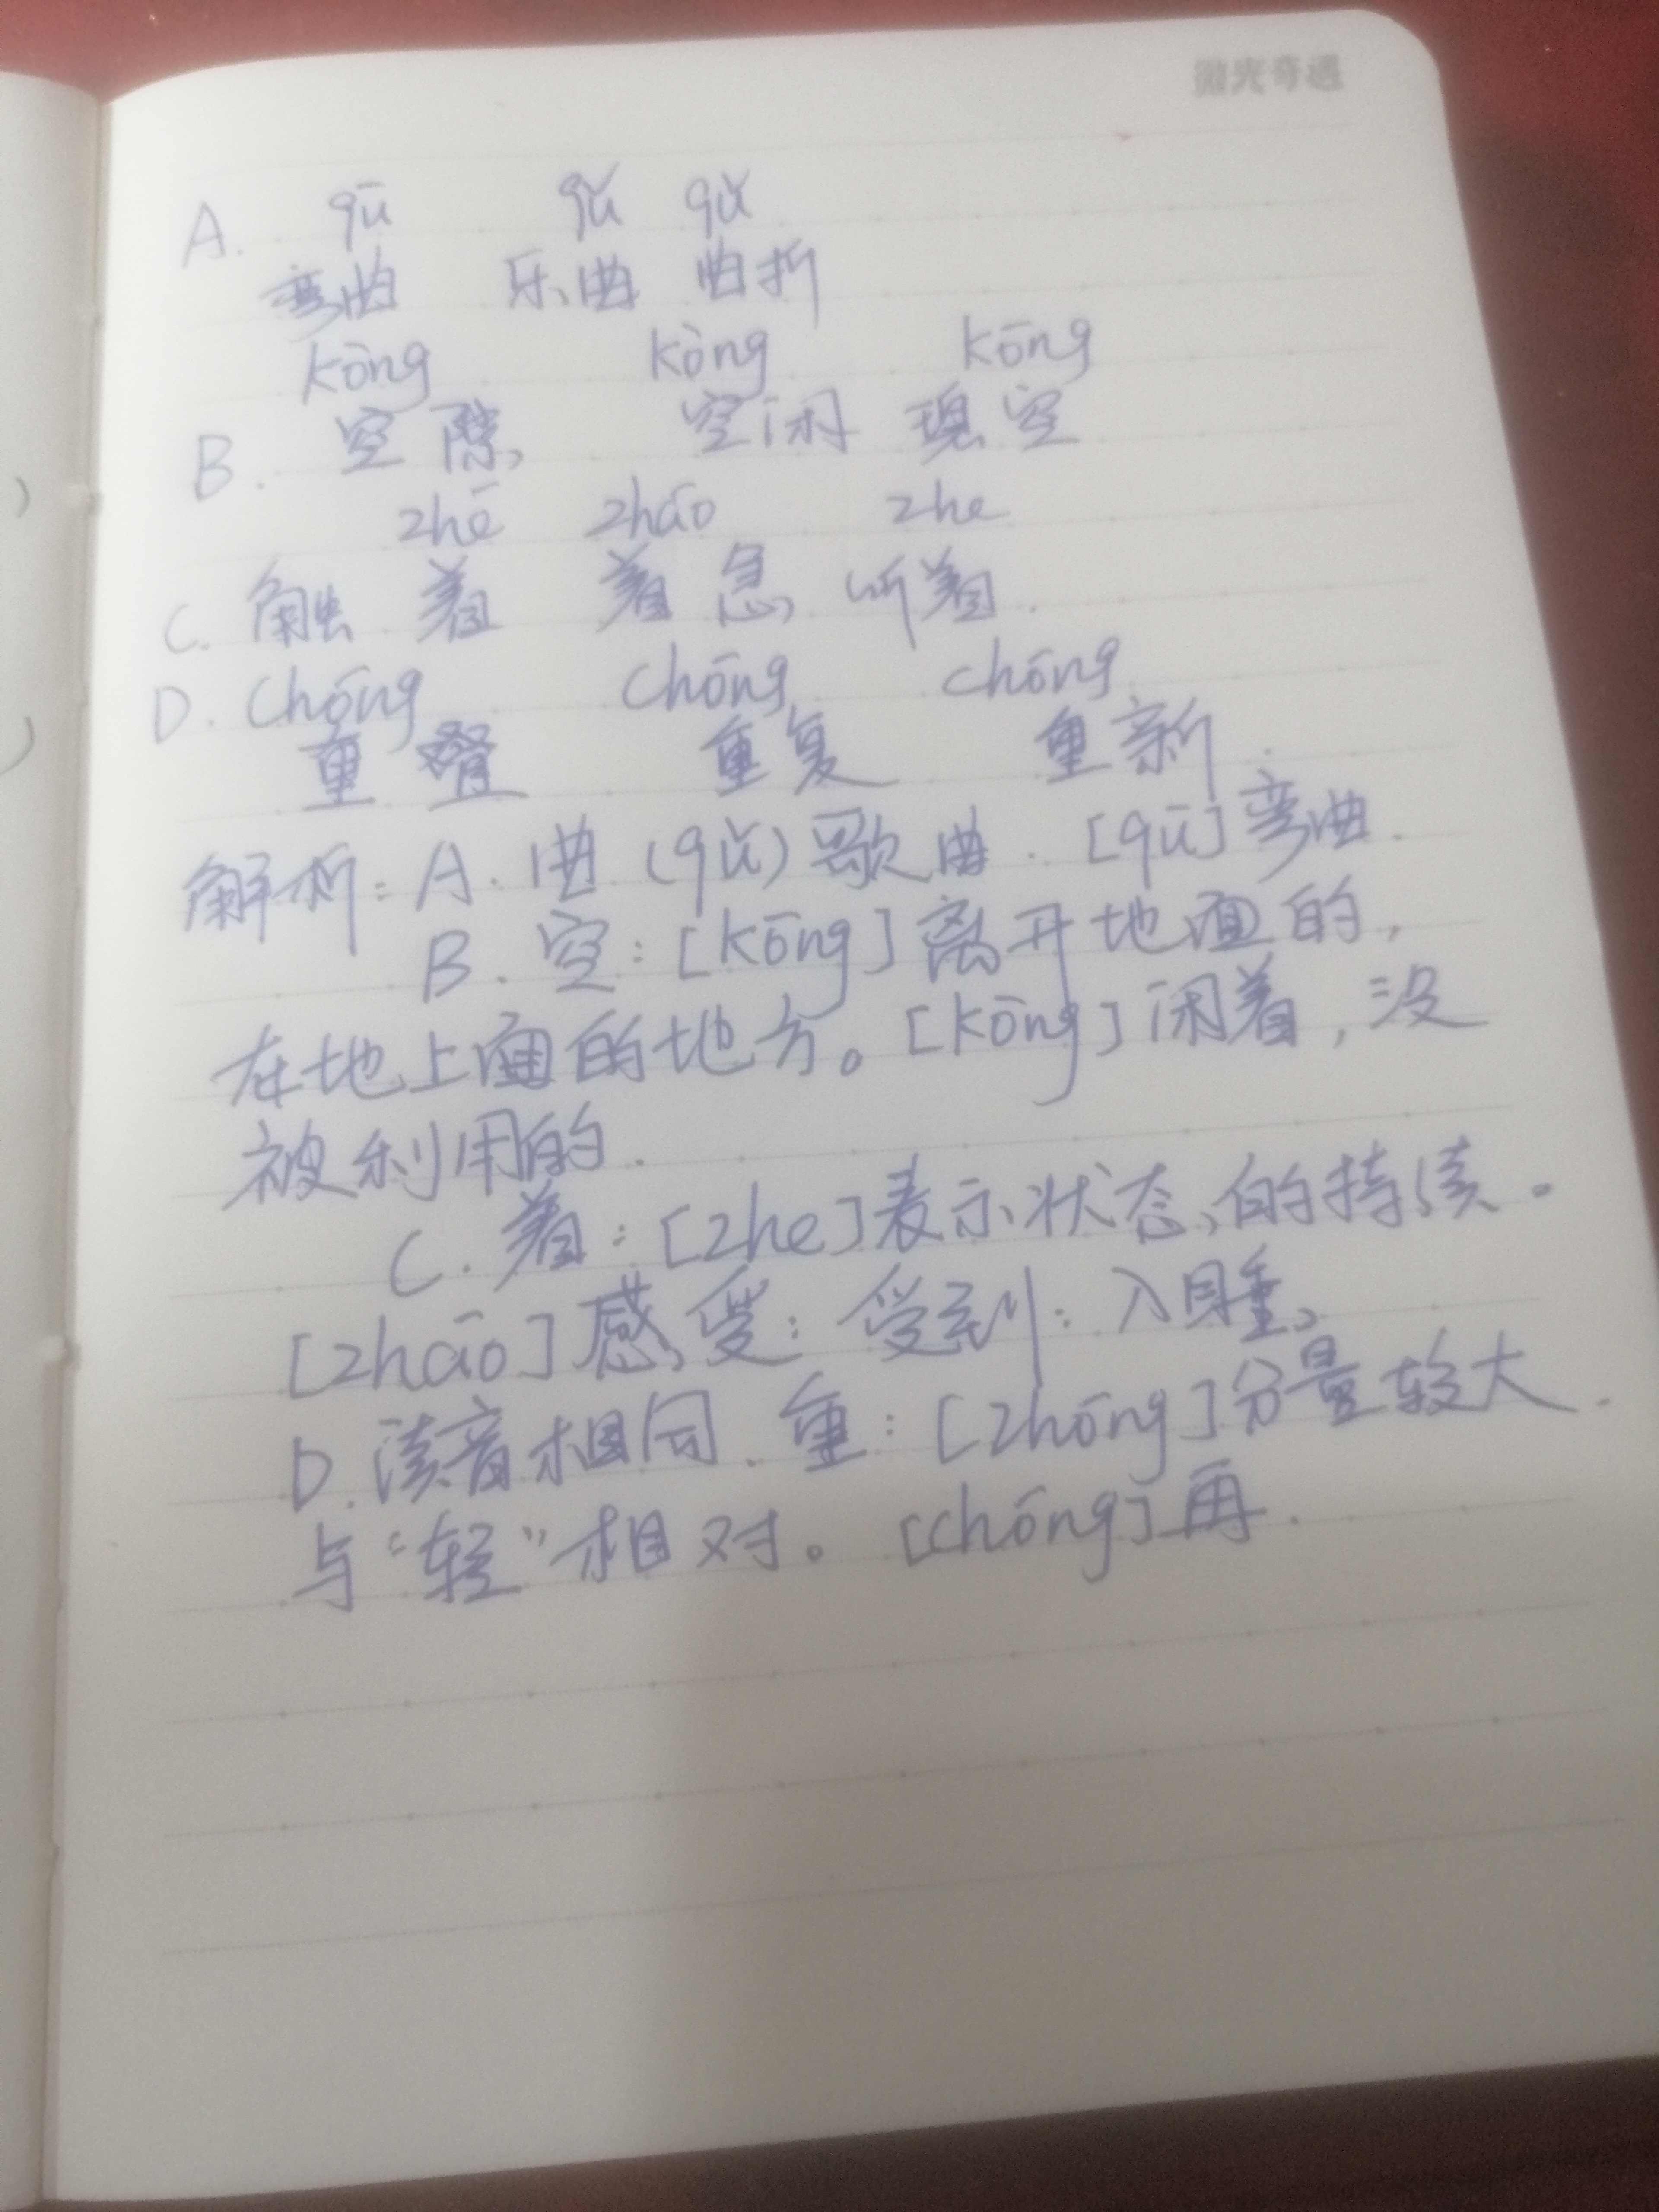 微光奇遇
A. qū qǔ qǔ
弯曲 乐曲 曲折
kòng kòng kōng
B. 空隙 空闲 现空
zhē zhāo zhe
C. 触着 着急 听着.
D. chóng chóng chóng
重叠 重复 重新.
解析: A. 曲 (qǔ) 歌曲. [qū] 弯曲.
B. 空: [kōng] 离开地面的,
在地上面的地方。[kōng] 闲着, 没
被利用的.
C. 着: [zhe] 表示状态的持续。
[zhāo] 感受: 受到: 入睡
D. 读音相同. 重: [zhōng] 分量较大.
与“轻”相对。[chóng] 再.